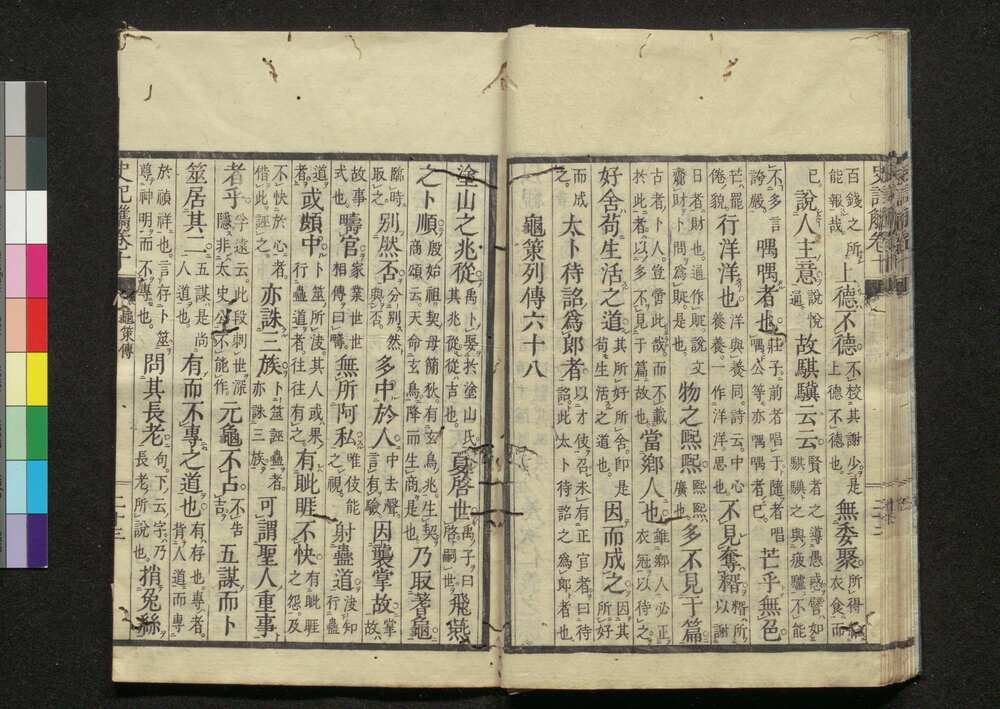 百錢之所上德不德不校其謝少是無委聚所得
能報哉上德不德也衣食而
已說人主意說悅故騏驥云云賢者之導愚惑譬如
騏驥之與疲驢不能
不多言喁喁者也莊子前者唱于隨者唱芒乎無色
誇嚴喁公等亦喁喁者已
芒罷行洋洋也洋與養同詩云中心不見奪糈糈所
倦貌養養一作洋洋思也以謝
日者財也通作貶說文物之熙熙熙熙多不見于篇
齎財卜問為貶是也廣也
古者卜人豈當此哉而不載當鄉人也雖鄉人必正
於此者以多不見于篇故也衣冠以待之
好舍苟生活之道其所好所舍即是因而成之因其
苟生活之道也所好
而成太卜待詔為郎者以才伎召未有正官者曰待
之詔此太卜待詔之為郎者也
龜策列傳六十八
塗山之兆從禹卜娶於塗山氏夏啓世禹子曰飛燕
其兆從從吉也啓嗣世
之卜順殷始祖契母簡狄有玄鳥兆生契乃取蓍龜
商頌云天命玄鳥降而生商是也
臨時別然否分別然多中於人中去聲因襲掌故掌
取之與否言有驗故
故事疇官家業世世無所阿私唯伎能射蠱道浚知
式也相傳曰疇之視行蠱
道或頗中卜筮所浚其人或果有眦睚不快有眦睚
者行蠱道者往往有之之怨及
不快於心者亦誅三族卜筮誣蠱者可謂聖人重事
借此誣之亦誅三族
者乎李遠云此段刺世深元龜不占不告五謀而卜
隱非太史公不能作吉
筮居其二五謀是尚有而不專之道也有存也專者
二人道也背人道而專
於禎祥也言存卜筮問其長老句下云字乃捎兔絲
尊神明而不專也長老所說也
史記雕卷十
龜策傳
二十三